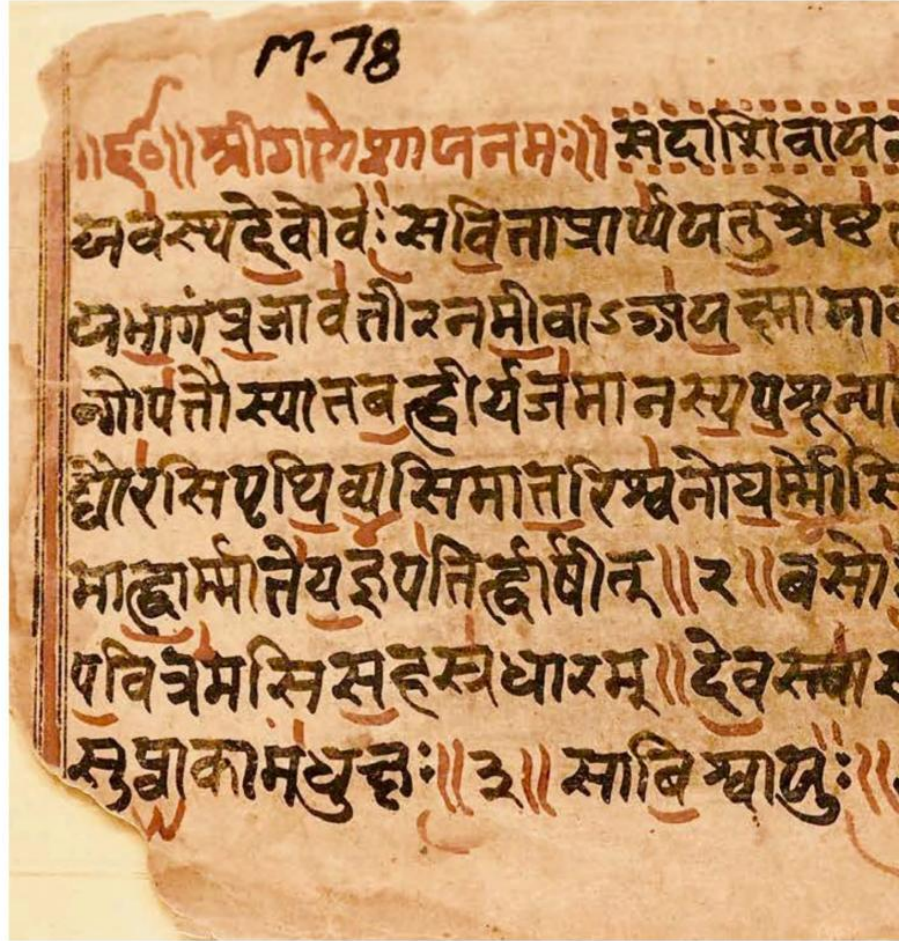 M-78
॥र्द०॥ श्रीगणेशायनमः॥ सदाशिवायन
यवस्यदेवोवः सविताप्रार्प्पयतुश्रेष्ठ
यभागंप्रजावतीरनमीवाऽअयक्ष्मामाव
ग्गोपतौस्यातबह्वीर्यजमानस्यपशून्पा
द्यौरसिपृथिव्यसिमातरिश्वनोघर्म्मोसि
माह्वार्म्मातेयज्ञपतिर्ह्वार्षीत्॥२॥बसो
पवित्रमसिसहस्रधारम्॥देवस्त्वास
सुप्वाकामधुक्षः॥३॥ साविश्वायुः॥